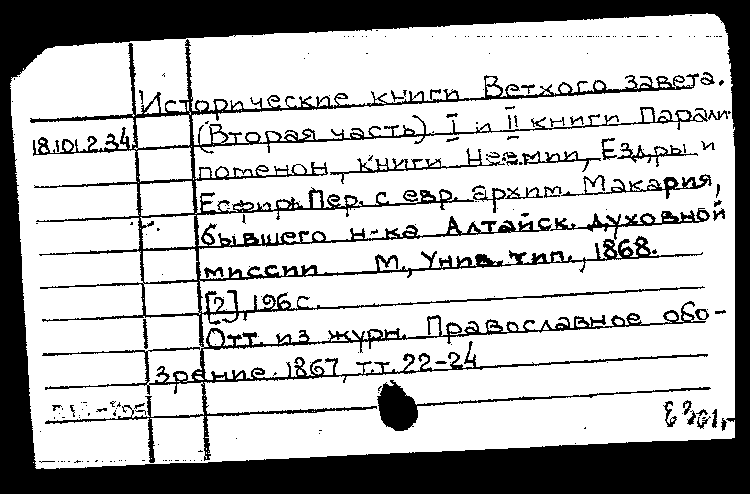 Исторические книги Ветхого завета.
18.101.2.34. (Вторая часть). I и II книги Парали-
поменон, книги Неемии, Ездры и
Есфирь. Пер. с евр. архим. Макария,
бывшего н-ка Алтайск. духовной
миссии. М., Унив. тип., 1868.
[2], 196 с.
Отт. из журн. Православное обо-
зрение. 1867, т.т. 22-24